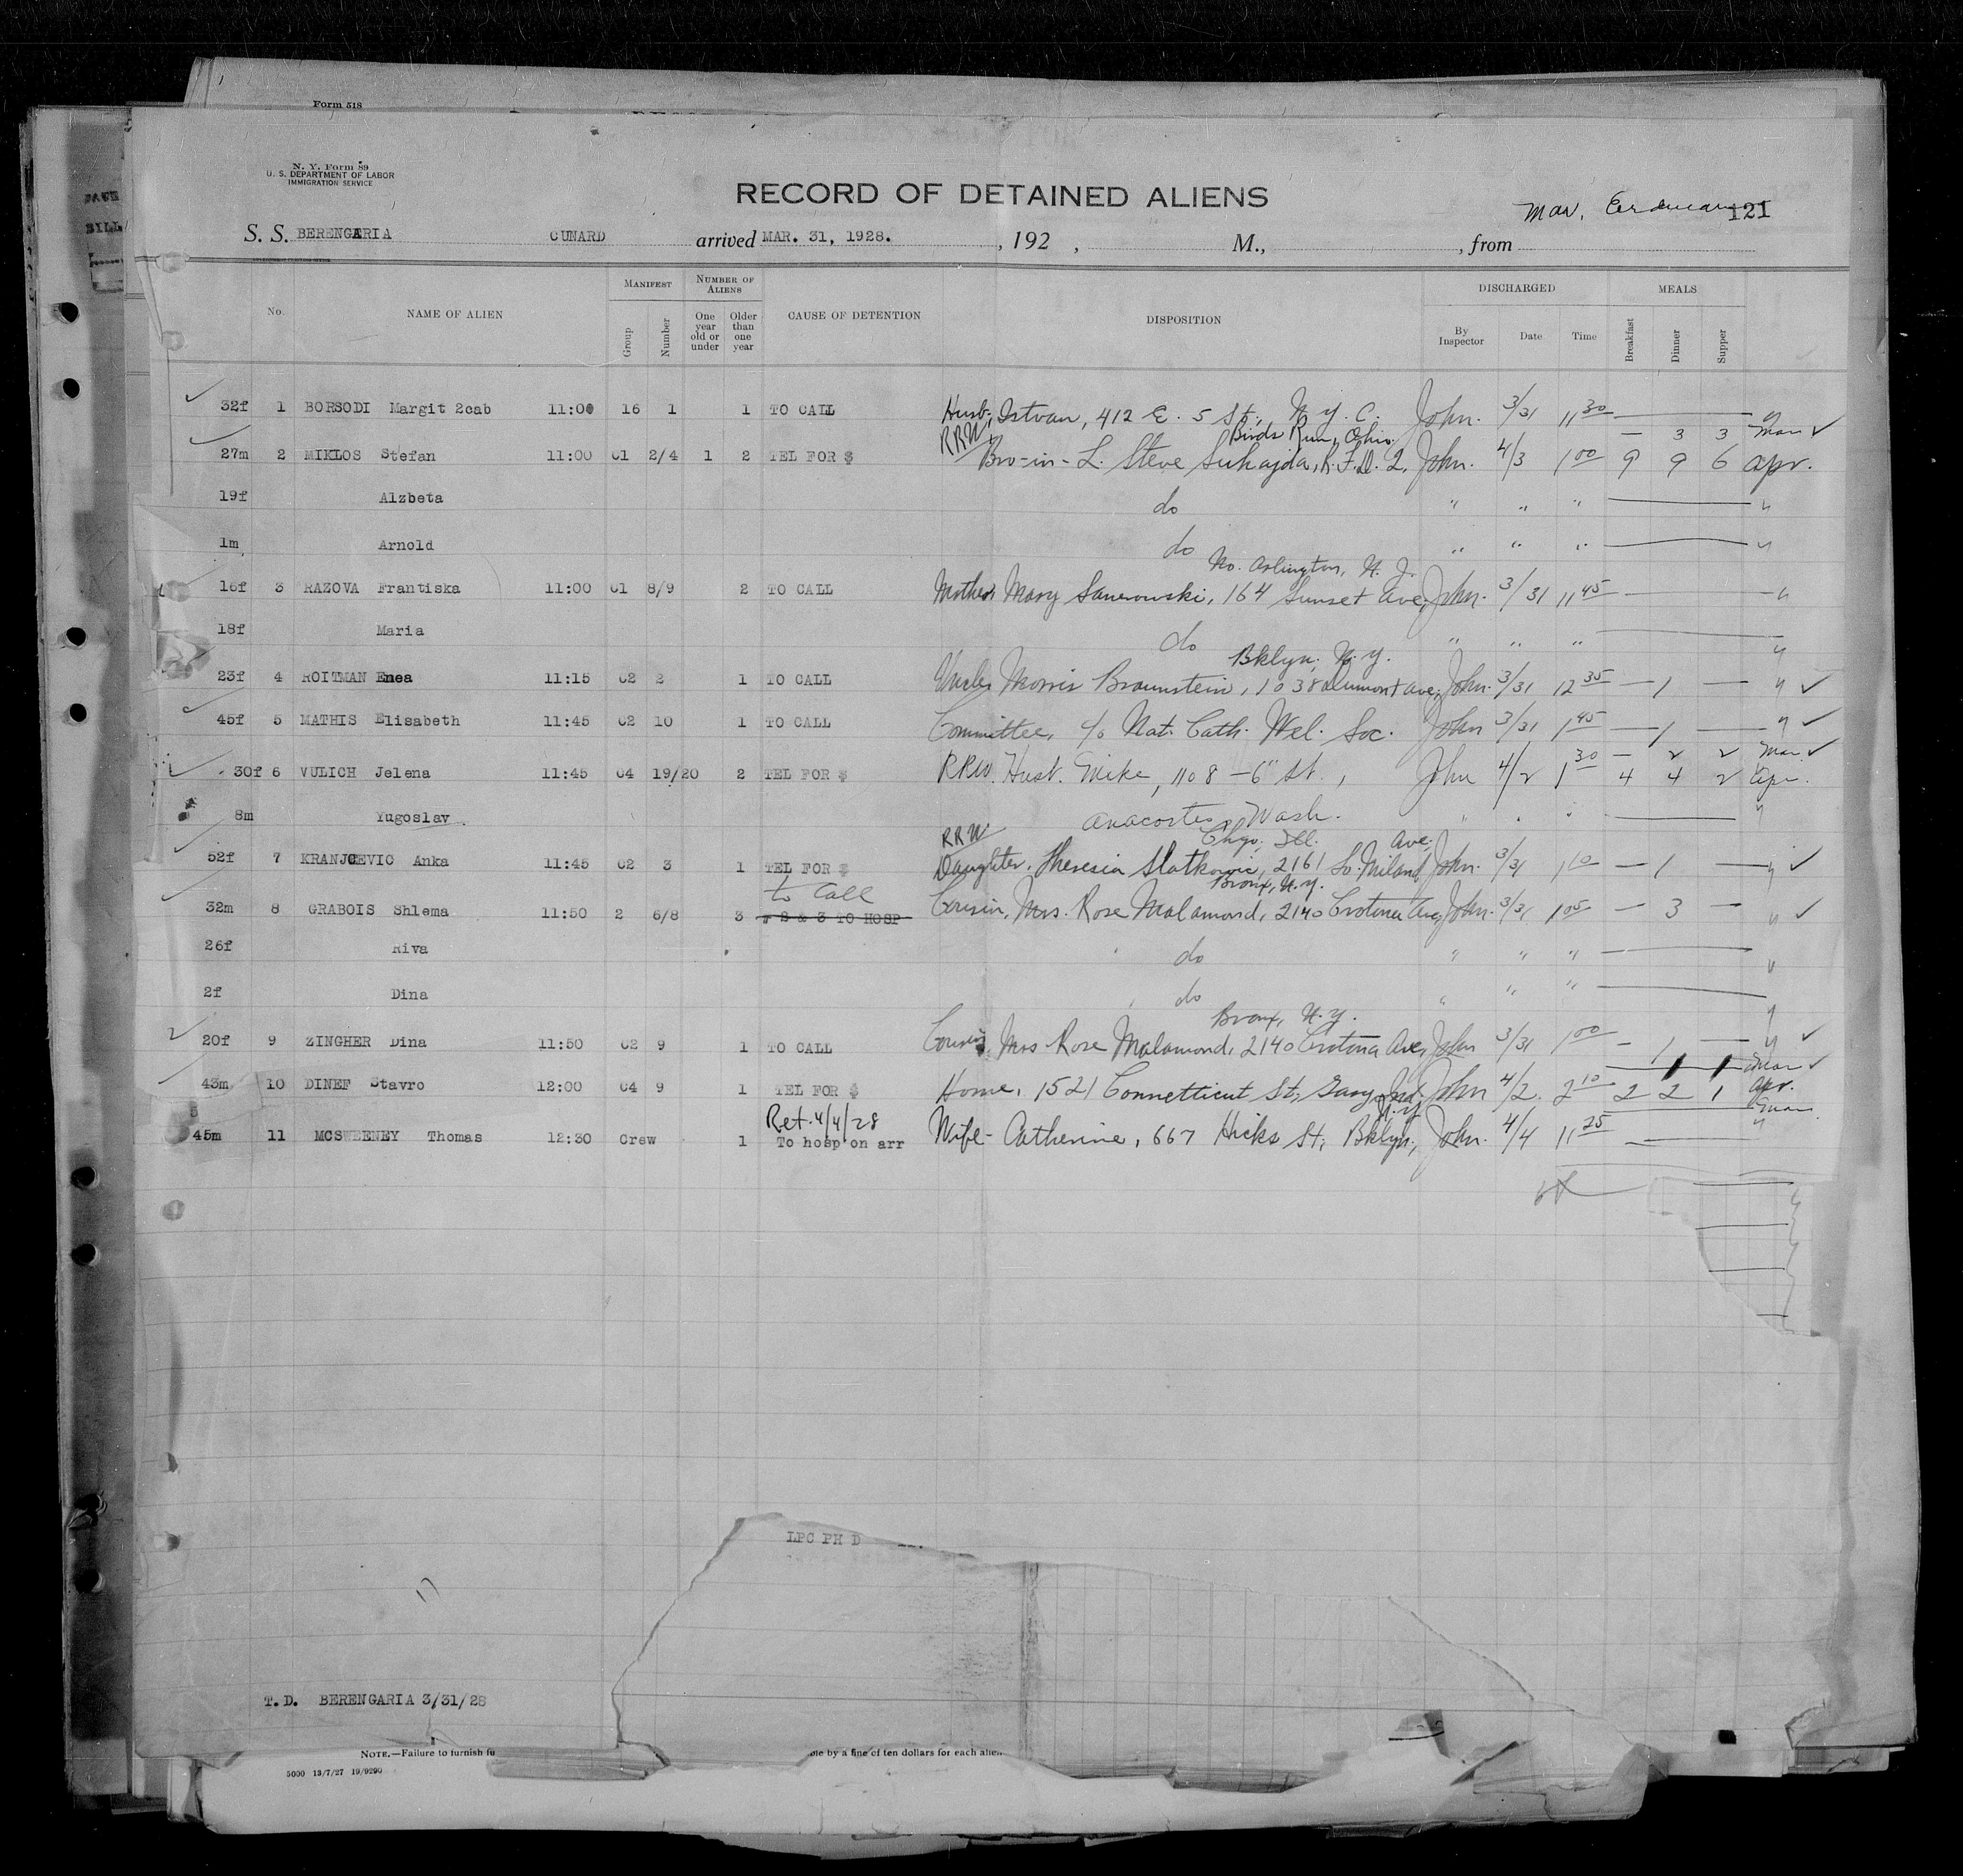 Form 518
N. Y. Form 89
U. S. DEPARTMENT OF LABOR
IMMIGRATION SERVICE
RECORD OF DETAINED ALIENS
Mar. 121
S. S. BERENGARIA CUNARD arrived MAR. 31, 1928. , 192 , M., , from
No. NAME OF ALIEN MANIFEST Group Number NUMBER OF ALIENS One year old or under Older than one year CAUSE OF DETENTION DISPOSITION DISCHARGED By Inspector Date Time MEALS Breakfast Dinner Supper
32f 1 BORSODI Margit 2cab 11:00 16 1 1 TO CALL Husb; Istvan, 412 E. 5 St., N. Y. C. John. 3/31 11 30 "
RRW Birds Run, Ohio. — 3 3 Mar ✓
27m 2 MIKLOS Stefan 11:00 C1 2/4 1 2 TEL FOR $ Bro-in-L. Steve Suhajda, R.F.D. 2, John. 4/3 1 00 9 9 6 Apr.
19f Alzbeta do " " " "
1m Arnold do " " " "
No. Arlington, N. J.
16f 3 RAZOVA Frantiska 11:00 C1 8/9 2 TO CALL Mother Mary Sanerowski, 164 Sunset Ave, John. 3/31 11 45 "
18f Maria do " " " "
Bklyn, N. Y.
23f 4 ROITMAN Enea 11:15 C2 2 1 TO CALL Uncle, Morris Braunstein, 1038 Ave, John. 3/31 12 35 — 1 — " ✓
45f 5 MATHIS Elisabeth 11:45 C2 10 1 TO CALL Committee, c/o Nat. Cath. Wel. Soc. John 3/31 1 45 — 1 — " ✓
— 2 2 Mar ✓
30f 6 VULICH Jelena 11:45 C4 19/20 2 TEL FOR $ RRW. Husb. Mike, 1108 – 6" St., John 4/2 1 30 4 4 2 Apr.
8m Yugoslav. Anacortes, Wash. " " " "
RRW Chgo, Ill. Ave,
52f 7 KRANJCEVIC Anka 11:45 C2 3 1 TEL FOR $ Daughter, Theresia Slatkovic, 2161 So. John. 3/31 1 10 — 1 — " ✓
to Call Bronx, N.Y.
32m 8 GRABOIS Shlema 11:50 2 6/8 3 # 2 & 3 TO HOSP Cousin, Mrs. Rose Malamond, 2140 Crotona Ave, John. 3/31 1 05 — 3 — " ✓
26f Riva do " " " "
2f Dina do " " " "
Bronx, N.Y.
20f 9 ZINGHER Dina 11:50 C2 9 1 TO CALL Cousin, Mrs Rose Malamond, 2140 Crotona Ave, John 3/31 1 00 — 1 — " ✓
— 1 1 Mar ✓
43m 10 DINEF Stavro 12:00 C4 9 1 TEL FOR $ Home, 1521 Connetticut St, Gary, Ind. John 4/2. 2 10 2 2 1 Apr.
Ret. 4/4/28 N.Y. Mar
45m 11 MCSWEENEY Thomas 12:30 Crew 1 To hosp on arr Wife- Catherine, 667 Hicks St, Bklyn, John. 4/4 11 25 "
LPC PH D
T.D. BERENGARIA 3/31/28
NOTE.—Failure to furnish fu ble by a fine of ten dollars for each alien
5000 13/7/27 19/9290